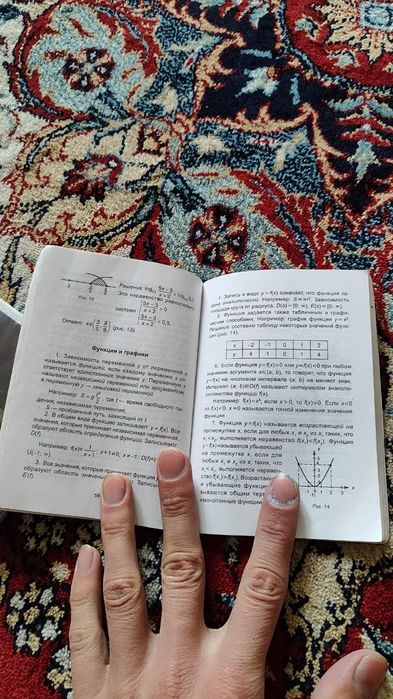 Рис. 13
Решение: log₀,₅ (5x−3)/(x+2) > log₀,₅ 0,5.
Это неравенство равносильно
системе { (5x−3)/(x+2) > 0
(5x−3)/(x+2) < 0,5.
Ответ: x∈(3/5; 8/9) (рис. 13).
Функции и графики
1. Зависимость переменной y от переменной x
называется функцией, если каждому значению x со-
ответствует единственное значение y. Переменную x
называют независимой переменной или аргументом,
а переменную y —
Например: S = g t²/2, где t — время свободного па-
дения, независимая переменная;
S — пройденный путь, зависящий от t.
2. В общем виде функцию записывают: y = f(x). Все
значения, которые принимает независимая переменная,
образуют область определения функции. Записывают:
D(f).
Например: f(x) = 1/(x+1) x+1≠0, x≠−1. D(f)=(
U(−1; ∞).
3. Все значения, которые принимает функция
образуют область значений функции. Записы
E(f).
4. Запись в виде y = f(x) означает, что функция за-
дана аналитически. Например: S = πr². Зависимость
площади круга от радиуса. D(s) = [0; ∞), E(s) = [0; ∞).
5. Функция задается также табличным и графи-
ческим способами. Например: график функции y = x².
Решение: составим таблицу некоторых значений функ-
ции (рис. 14).
x −2 −1 0 1 2
y 4 1 0 1 4
6. Если функция y = f(x) > 0 или y = f(x) < 0 при любом
значении аргумента x∈(a; b), то говорят, что функция
y = f(x) на числовом интервале (a; b) не меняет знак.
Интервал (a; b)∈D(f) называют интервалом знакопо-
стоянства функции f(x).
Например: f(x) = x³, если x > 0, то f(x) > 0. Если x < 0,
то f(x) < 0, x = 0 называется точкой изменения значения
функции.
7. Функция y = f(x) называется возрастающей на
промежутке x, если для любых x₁ и x₂ из x, таких, что
x₁ < x₂, выполняется неравенство f(x₁) < f(x₂). Функция
y = f(x) называется убывающей
на промежутке x, если для
любых x₁ и x₂ из x, таких, что
x₁ < x₂, выполняется неравен-
ство f(x₁) > f(x₂). Возрастаю
и убывающие функции
зываются общим
монотонными функциями.
Рис. 14